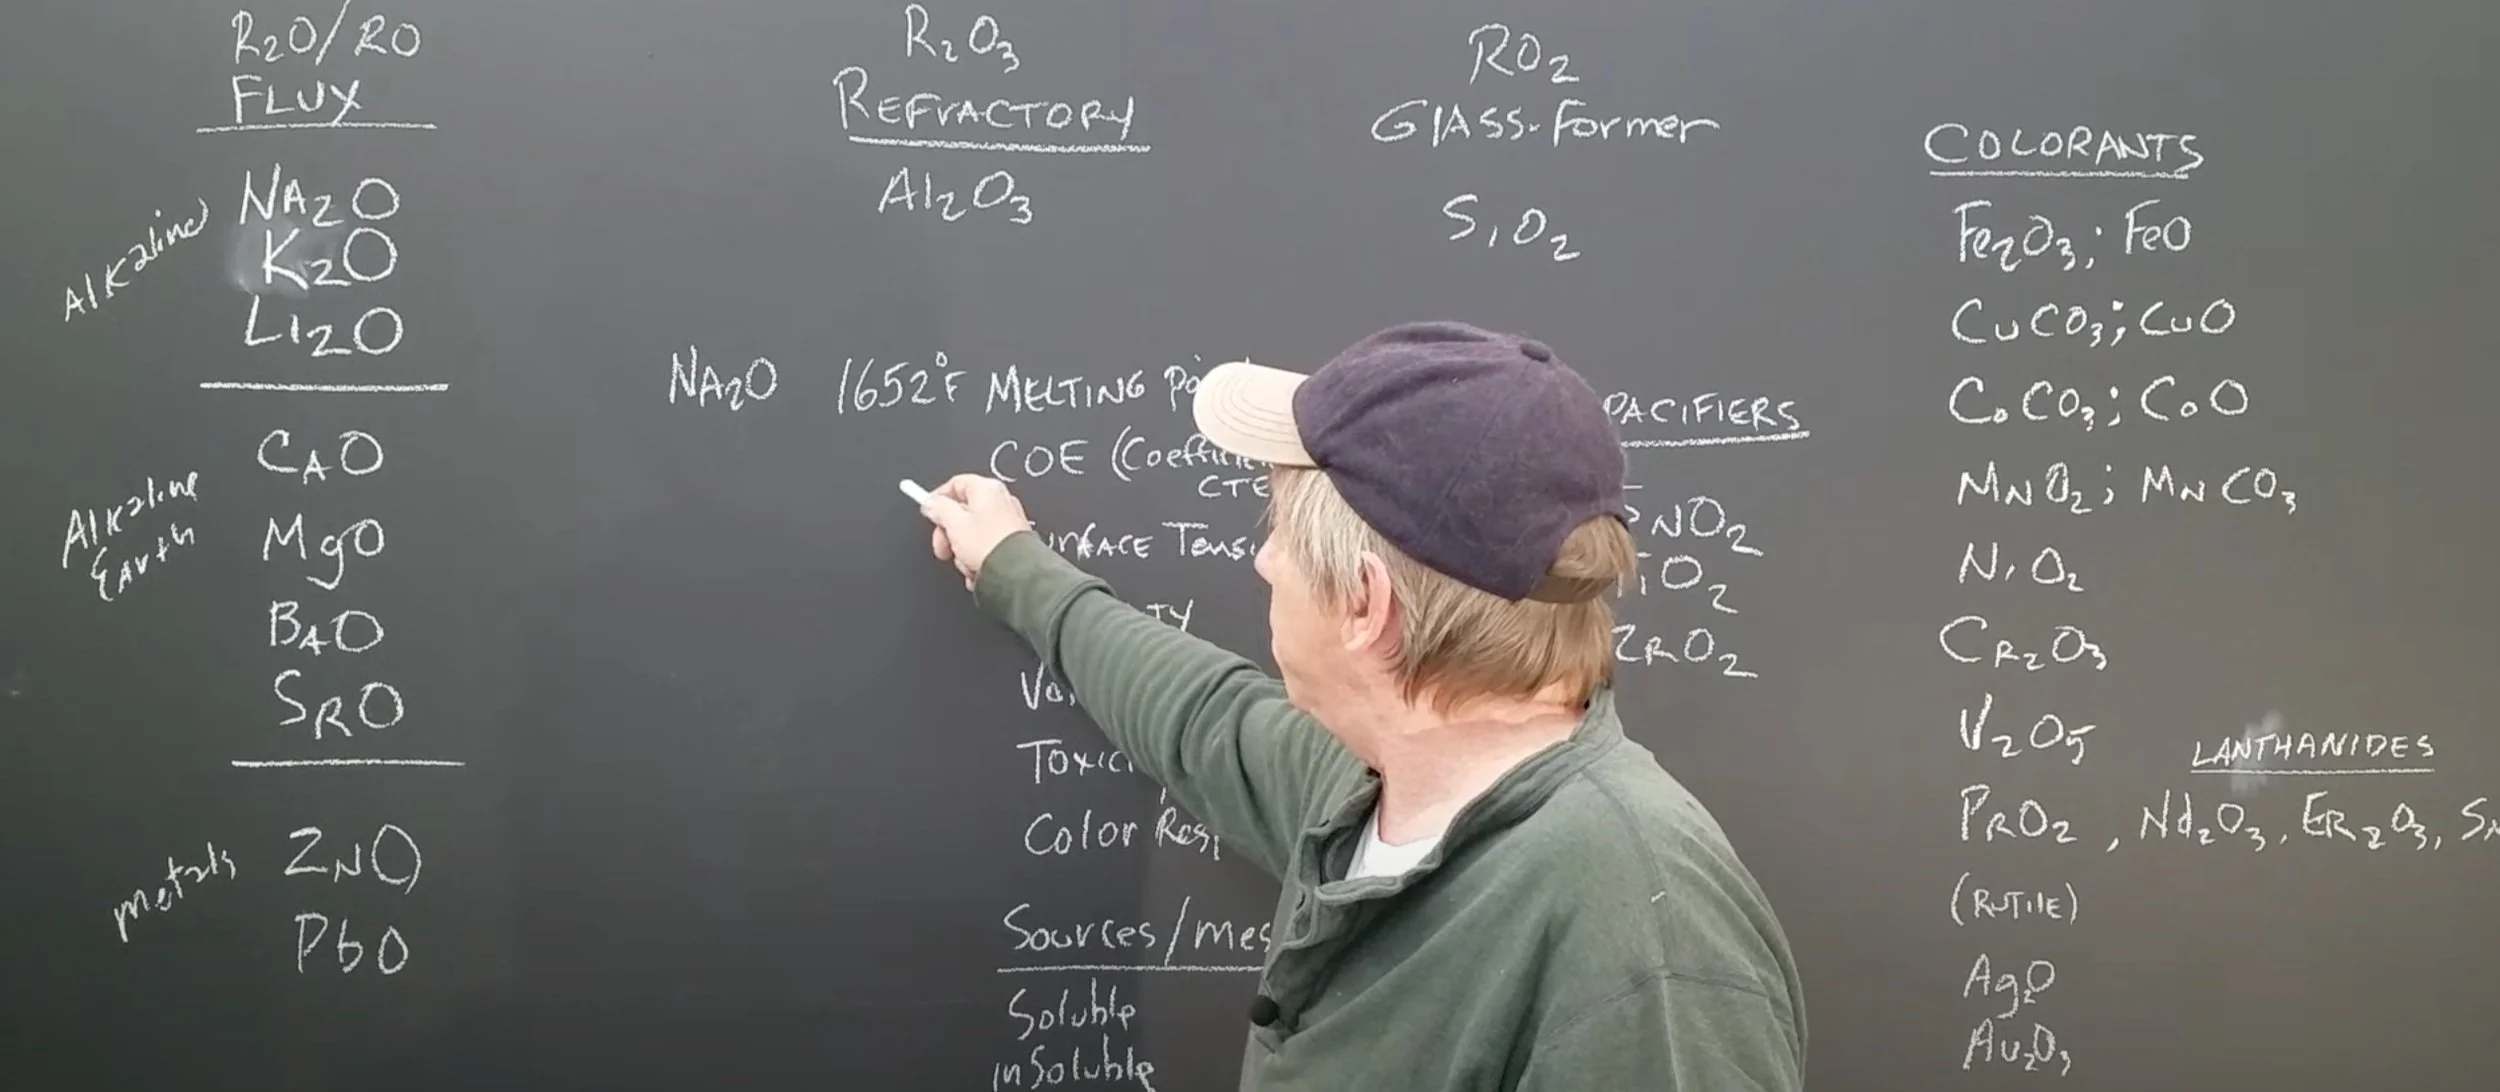 R2O/RO
FLUX
Alkaline
NA2O
K2O
Li2O
Alkaline
Earth
CAO
MgO
BAO
SRO
metals
ZNO
PbO
R2O3
REFRACTORY
Al2O3
RO2
Glass-Former
SiO2
NA2O 1652°F MELTING
COE
CTE
Toxici
Color
Sources/mes
Soluble
inSoluble
PACIFIERS
NO2
iO2
ZRO2
COLORANTS
Fe2O3; FeO
CuCO3; CuO
CoCO3; CoO
MNO2; MNCO3
NiO2
CR2O3
V2O5
LANTHANIDES
PRO2, Nd2O3, ER2O3,
(RUTILE)
Ag2O
Au2O3